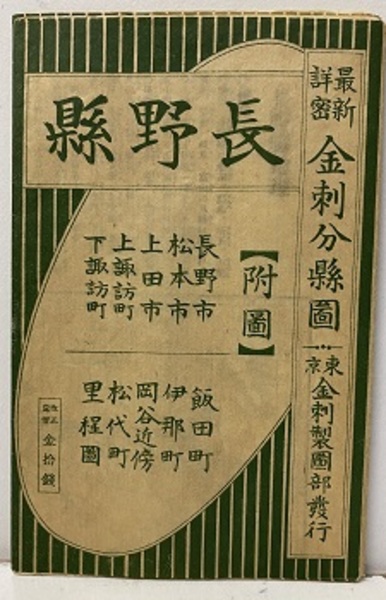 最新詳密
金刺分縣圖
東京 金刺製圖部發行
長野縣
【附圖】
長野市
松本市
上田市
上諏訪町
下諏訪町
飯田町
伊那町
岡谷近傍
松代町
里程圖
金拾錢